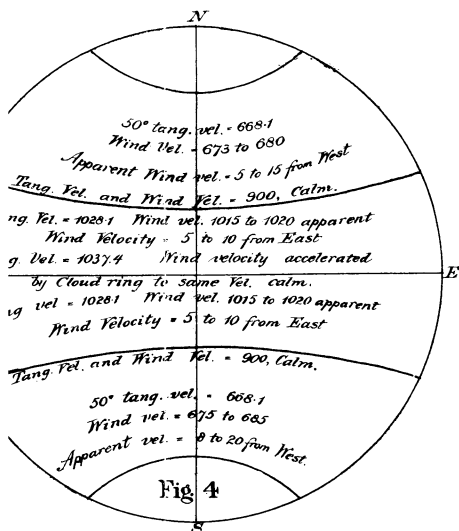 N
50° tang. vel. = 668.1
Wind Vel. = 673 to 680
Apparent Wind vel. = 5 to 15 from West
Tang. Vel. and Wind Vel. = 900, Calm.
ng. Vel. = 1028.1 Wind vel. 1015 to 1020 apparent
Wind Velocity = 5 to 10 from East
g. Vel. = 1037.4 Wind velocity accelerated
E
by Cloud ring to same Vel. calm.
ng vel = 1028.1 Wind vel. 1015 to 1020 apparent
Wind Velocity = 5 to 10 from East
Tang. Vel. and Wind Vel. = 900, Calm.
50° tang. vel. = 668.1
Wind vel. = 675 to 685
Apparent vel. = 8 to 20 from West.
Fig. 4
S